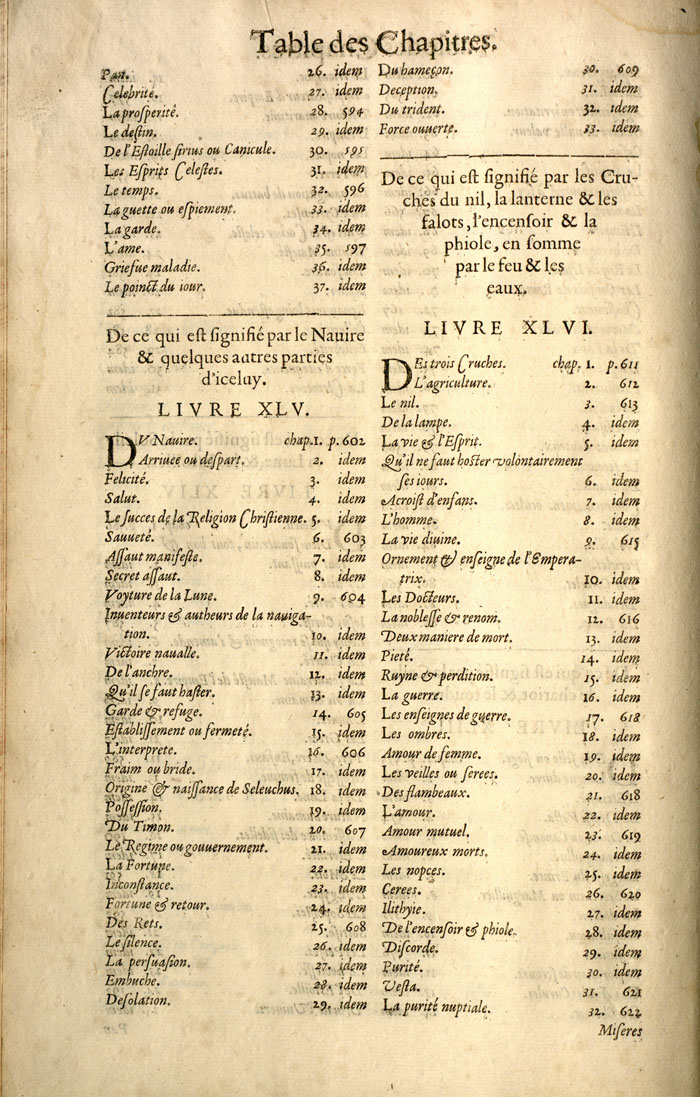 Table des Chapitres.
Pan. 26. idem
Celebrité. 27. idem
La proſperité. 28. 594
Le deſtin. 29. idem
De l'Eſtoille ſirius ou Canicule. 30. 595
Les Eſprits Celeſtes. 31. idem
Le temps. 32. 596
La guette ou eſpiement. 33. idem
La garde. 34. idem
L'ame. 35. 597
Griefue maladie. 36. idem
Le poinct du iour. 37. idem
De ce qui eſt ſignifié par le Nauire
& quelques autres parties
d'iceluy.
LIVRE XLV.
DV Nauire. chap.1. p. 602
Arriuee ou deſpart. 2. idem
Felicité. 3. idem
Salut. 4. idem
Le ſucces de la Religion Chriſtienne. 5. idem
Sauueté. 6. 603
Aſſaut manifeſte. 7. idem
Secret aſſaut. 8. idem
Voyture de la Lune. 9. 604
Inuenteurs & autheurs de la nauiga-
tion. 10. idem
Victoire naualle. 11. idem
De l'anchre. 12. idem
Qu'il ſe faut haſter. 13. idem
Garde & refuge. 14. 605
Eſtabliſſement ou fermeté. 15. idem
L'interprete. 16. 606
Fraim ou bride. 17. idem
Origine & naiſſance de Seleuchus. 18. idem
Poſſeſſion. 19. idem
Du Timon. 20. 607
Le Regime ou gouuernement. 21. idem
La Fortune. 22. idem
Inconſtance. 23. idem
Fortune & retour. 24. idem
Des Rets. 25. 608
Le ſilence. 26. idem
La perſuaſion. 27. idem
Embuche. 28. idem
Deſolation. 29. idem
Du hameçon. 30. 609
Deception. 31. idem
Du trident. 32. idem
Force ouuerte. 33. idem
De ce qui eſt ſignifié par les Cru-
ches du nil, la lanterne & les
falots, l'encenſoir & la
phiole, en ſomme
par le feu & les
eaux.
LIVRE XLVI.
DEs trois Cruches. chap. 1. p. 611
L'agriculture. 2. 612
Le nil. 3. 613
De la lampe. 4. idem
La vie & l'Eſprit. 5. idem
Qu'il ne faut hoſter volontairement
ſes iours. 6. idem
Acroiſt d'enfans. 7. idem
L'homme. 8. idem
La vie diuine. 9. 615
Ornement & enſeigne de l'Empera-
trix. 10. idem
Les Docteurs. 11. idem
La nobleſſe & renom. 12. 616
Deux maniere de mort. 13. idem
Pieté. 14. idem
Ruyne & perdition. 15. idem
La guerre. 16. idem
Les enſeignes de guerre. 17. 618
Les ombres. 18. idem
Amour de femme. 19. idem
Les veilles ou ſerees. 20. idem
Des flambeaux. 21. 618
L'amour. 22. idem
Amour mutuel. 23. 619
Amoureux morts. 24. idem
Les nopces. 25. idem
Cerees. 26. 620
Ilithyie. 27. idem
De l'encenſoir & phiole. 28. idem
Diſcorde. 29. idem
Purité. 30. idem
Veſta. 31. 621
La purité nuptiale. 32. 622
Miſeres